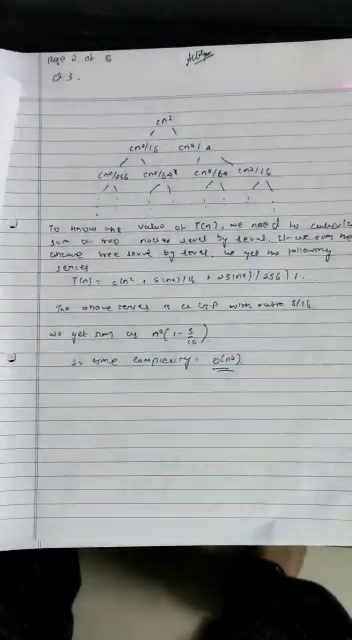 Page 2 of 5
Q 3.
cn²
cn²/16 cn²/4
cn²/256 cn²/64 cn²/64 cn²/16
To know the value of T(n), we need to calculate
sum of tree nodes level by level. If we sum the
above tree level by level, we get the following
series
T(n) = c(n² + 5(n²)/16 + 25(n²)/256) + ...
The above series is a G.P with ratio 5/16
we get sum as n²(1 - 5/16).
So time complexity = O(n²)